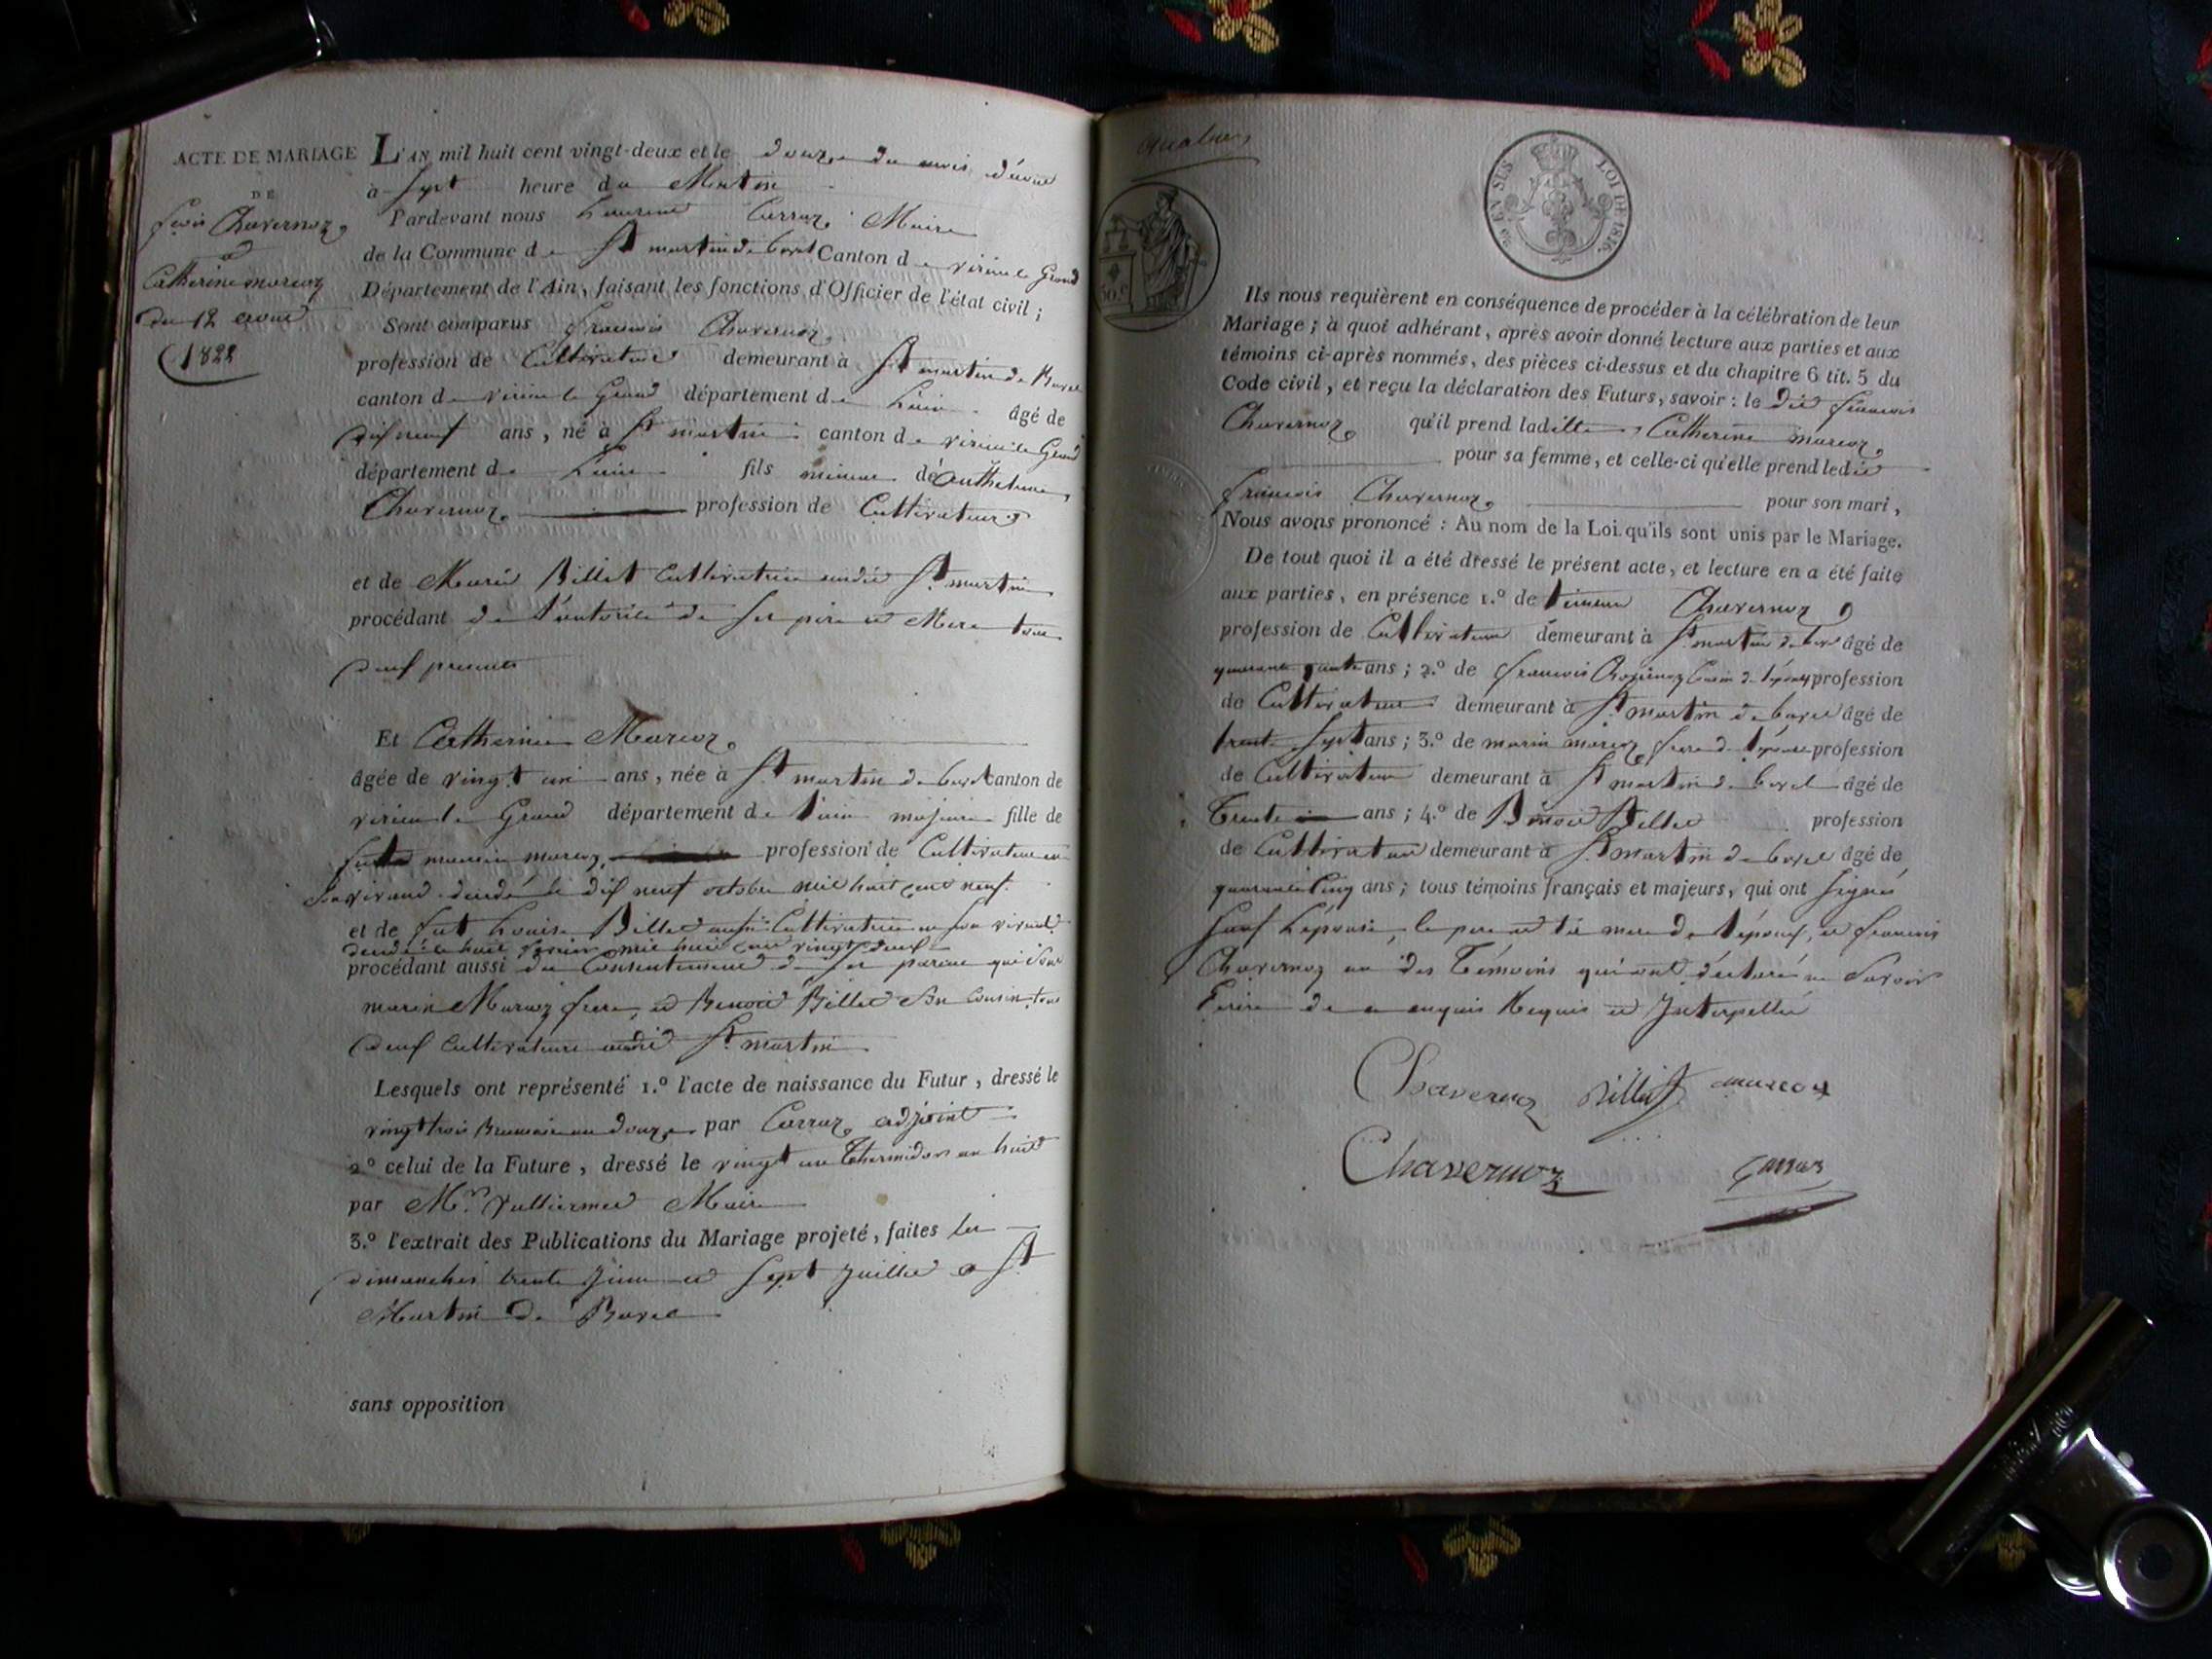 ACTE DE MARIAGE
DE
Fçois Chavernoz
à
Catherine marcoz
du 12 aout
1822
L'AN mil huit cent vingt-deux et le douze du mois d'aout
à sept heure du Matin
Pardevant nous Laurent Carraz Maire
de la Commune de St martin de bavel Canton de virieu le Grand
Département de l'Ain, faisant les fonctions d'Officier de l'état civil ;
Sont comparus françois Chavernoz
profession de Cultivateur demeurant à St martin de Bavel
canton de virieu le Grand département de L'ain âgé de
dix neuf ans, né à St martin canton de virieu le Grand
département de L'ain fils mineur de Anthelme
Chavernoz profession de Cultivateur
et de Marie Billet Cultivatrice audit St martin
procédant de l'autorité de ses père et Mere tous
deux presents
Et Catherine Marcoz
âgée de vingt un ans, née à St martin de bavel canton de
virieu le Grand département de l'ain majeure fille de
marin marcoz profession de Cultivateur en
son vivant décédé le dix neuf octobre mil huit cent neuf
et de fut Louise Billet aussi Cultivatrice en son vivant
décédée le huit mil huit cent vingt deux
procédant aussi du Consentement de ses parens qui sont
marin Marcoz frere, et Benoit Billet son Cousin tous
deux Cultivateurs audit St martin
Lesquels ont représenté 1.º l'acte de naissance du Futur, dressé le
vingt trois Brumaire an douze par Carraz adjoint
2º celui de la Future, dressé le vingt un Thermidor an huit
par Mr. Maire
3.º l'extrait des Publications du Mariage projeté, faites les
dimanches trente Juin et sept Juillet a St
Martin de Bavel
sans opposition
EN SUS LOI DE 1816.
Ils nous requièrent en conséquence de procéder à la célébration de leur
Mariage ; à quoi adhérant, après avoir donné lecture aux parties et aux
témoins ci-après nommés, des pièces ci-dessus et du chapitre 6 tit. 5 du
Code civil, et reçu la déclaration des Futurs, savoir : le dit françois
Chavernoz qu'il prend laditte Catherine marcoz
pour sa femme, et celle-ci qu'elle prend ledit
françois Chavernoz pour son mari,
Nous avons prononcé : Au nom de la Loi qu'ils sont unis par le Mariage.
De tout quoi il a été dressé le présent acte, et lecture en a été faite
aux parties, en présence 1.º de Chavernoz
profession de Cultivateur demeurant à St martin de bavel âgé de
quarante quatre ans ; 2.º de francois Chavernoz Cousin de l'époux profession
de Cultivateur demeurant à St martin de bavel âgé de
trente sept ans ; 3.º de marin marcoz frere de l'épouse profession
de Cultivateur demeurant à St martin de bavel âgé de
Trente ans ; 4.º de Benoit Billet profession
de Cultivateur demeurant à St martin de bavel âgé de
quarante Cinq ans ; tous témoins français et majeurs, qui ont signés
sauf L'épouse, le pere et la mere de l'époux, et francois
Chavernoz un des Témoins qui ont déclaré ne Savoir
Ecrire de ce enquis Requis et Interpellés
Chavernoz Billet marcoz
Chavernoz Carraz